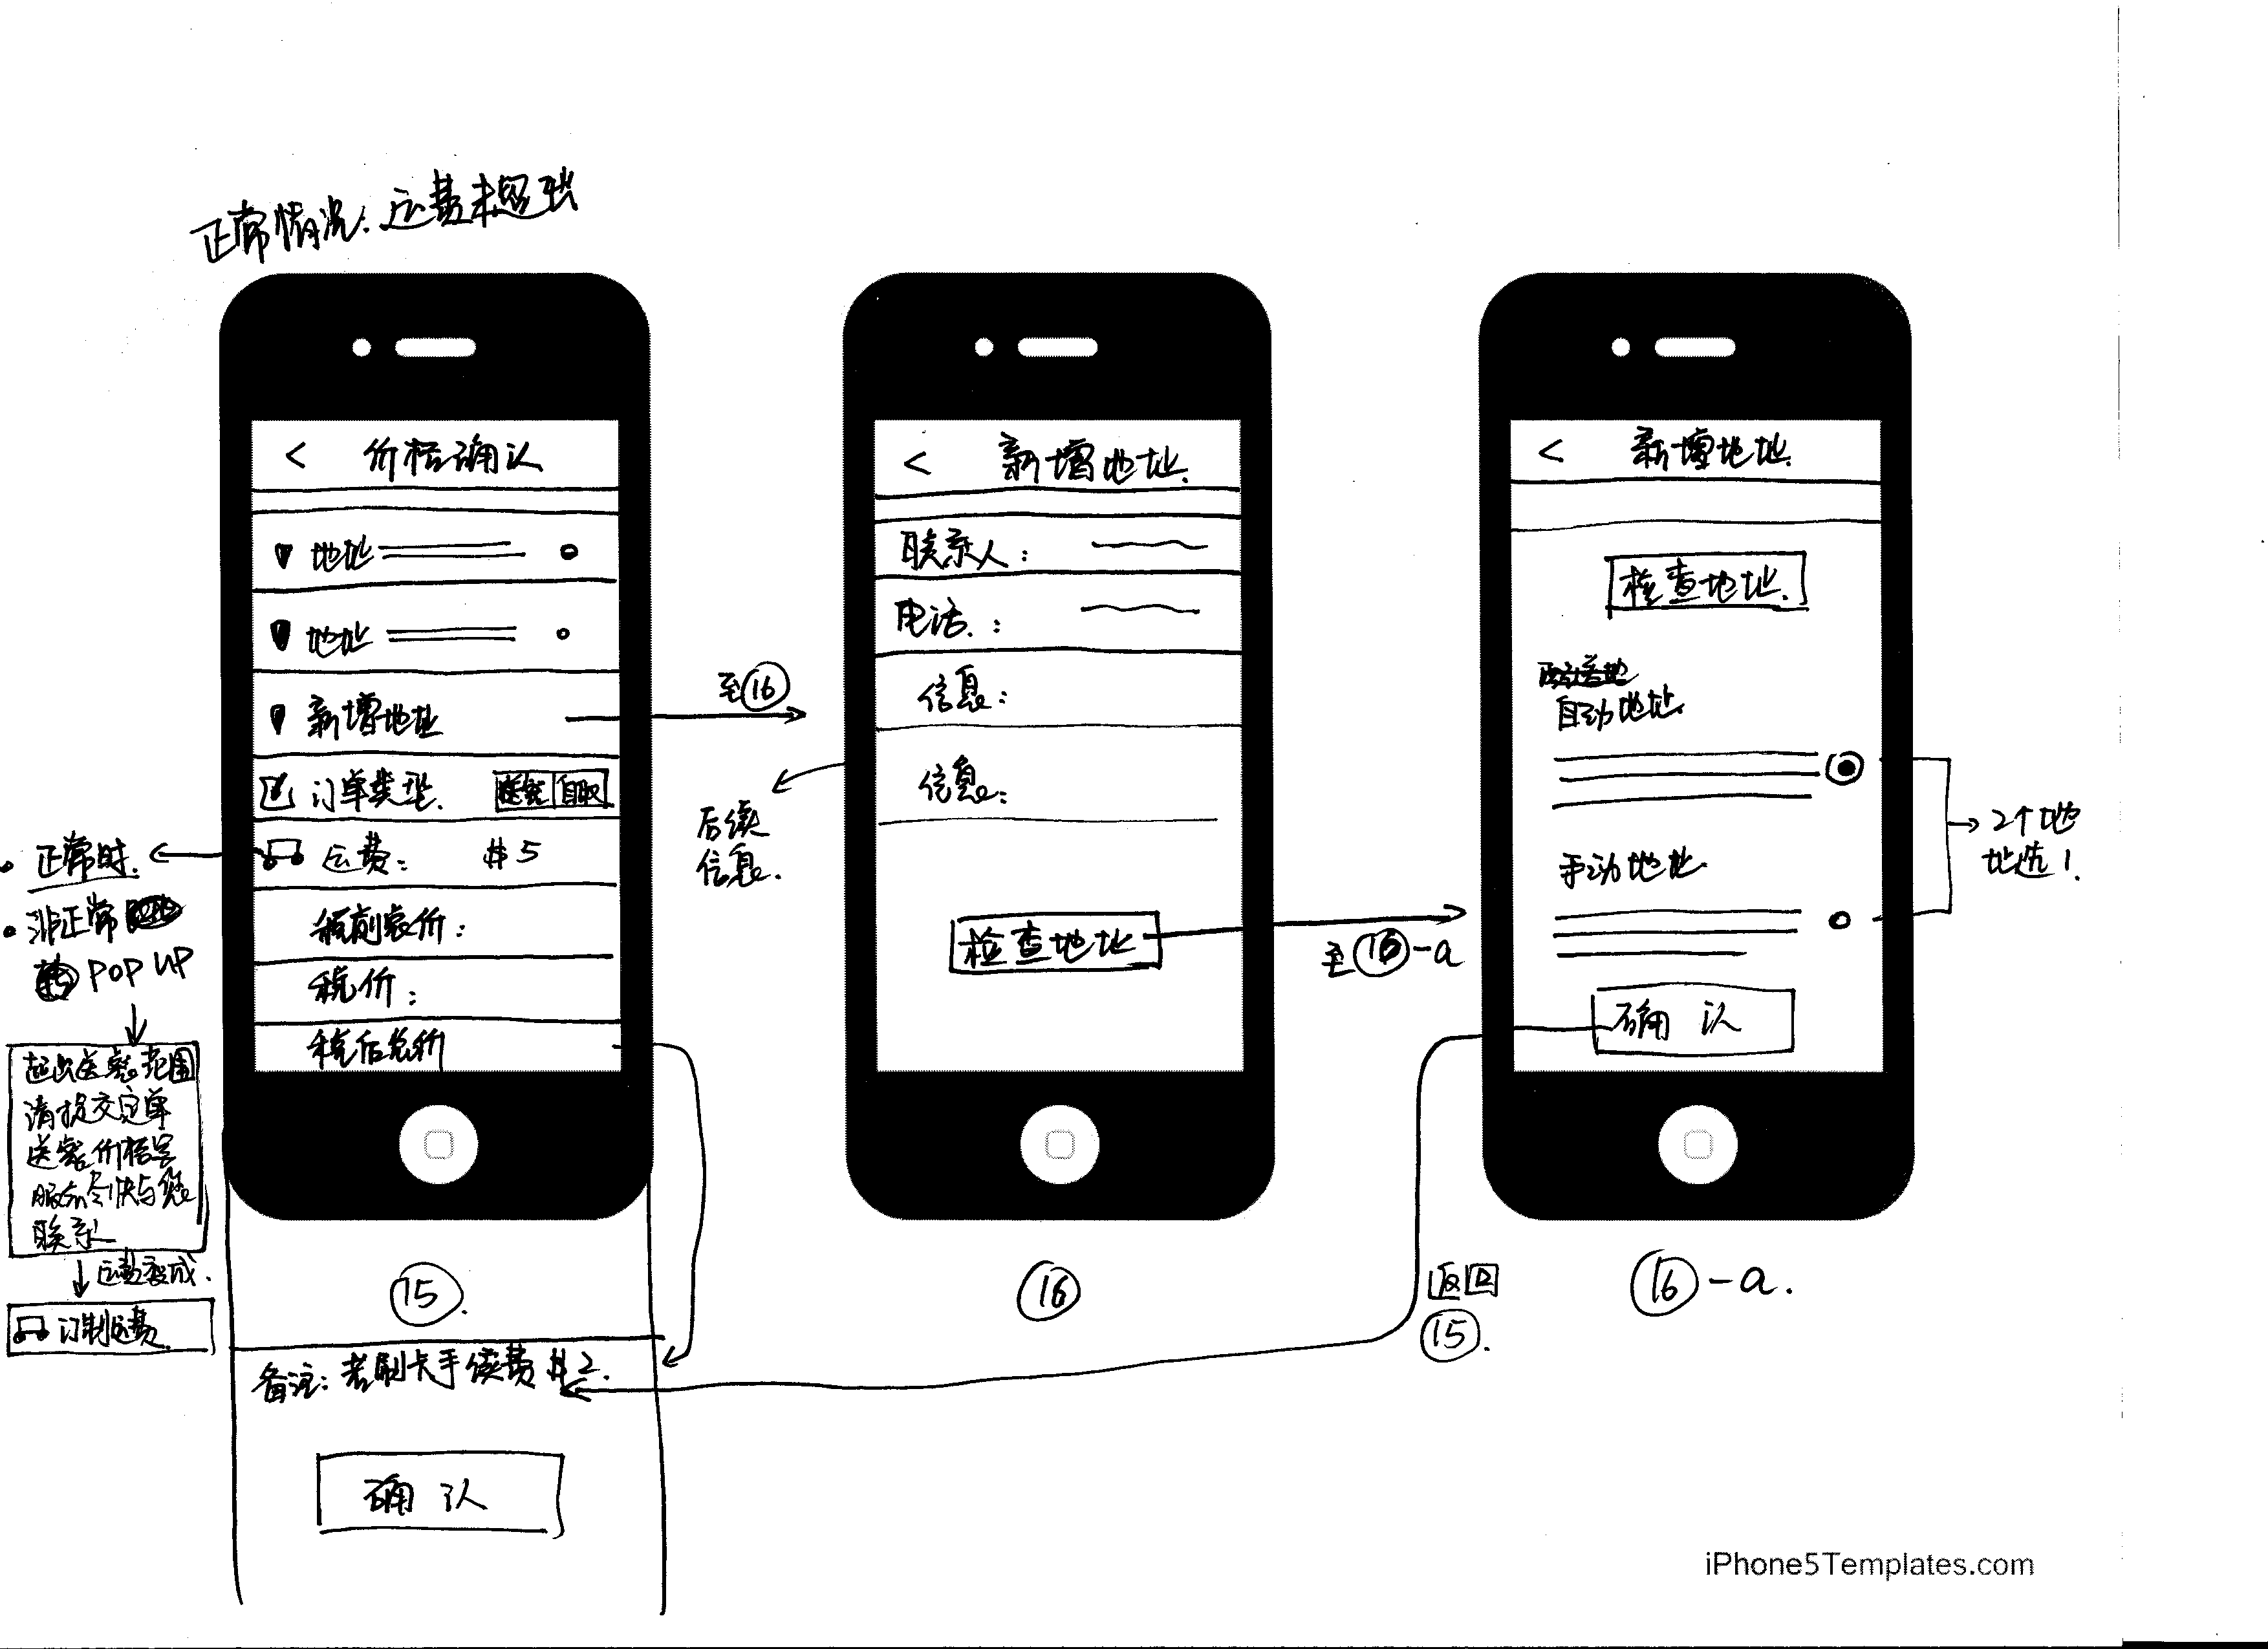 正常情况: 运费未超出
< 价格确认
地址
地址
新增地址
订单类型. 送餐 自取
运费: $5
税前总价:
税价:
税后总价
至 16
正常时.
非正常
POP UP
超出送餐范围
请提交定单
送餐价格客
服会尽快与您
联系
运费变成.
订制运费
15.
备注: 若刷卡手续费 $2.
确认
< 新增地址.
联系人:
电话.:
信息:
信息:
检查地址
后续
信息.
至 16-a
16
< 新增地址.
检查地址.
自动地址.
手动地址.
确认
2个地
址选1.
返回
15.
16-a.
iPhone5Templates.com